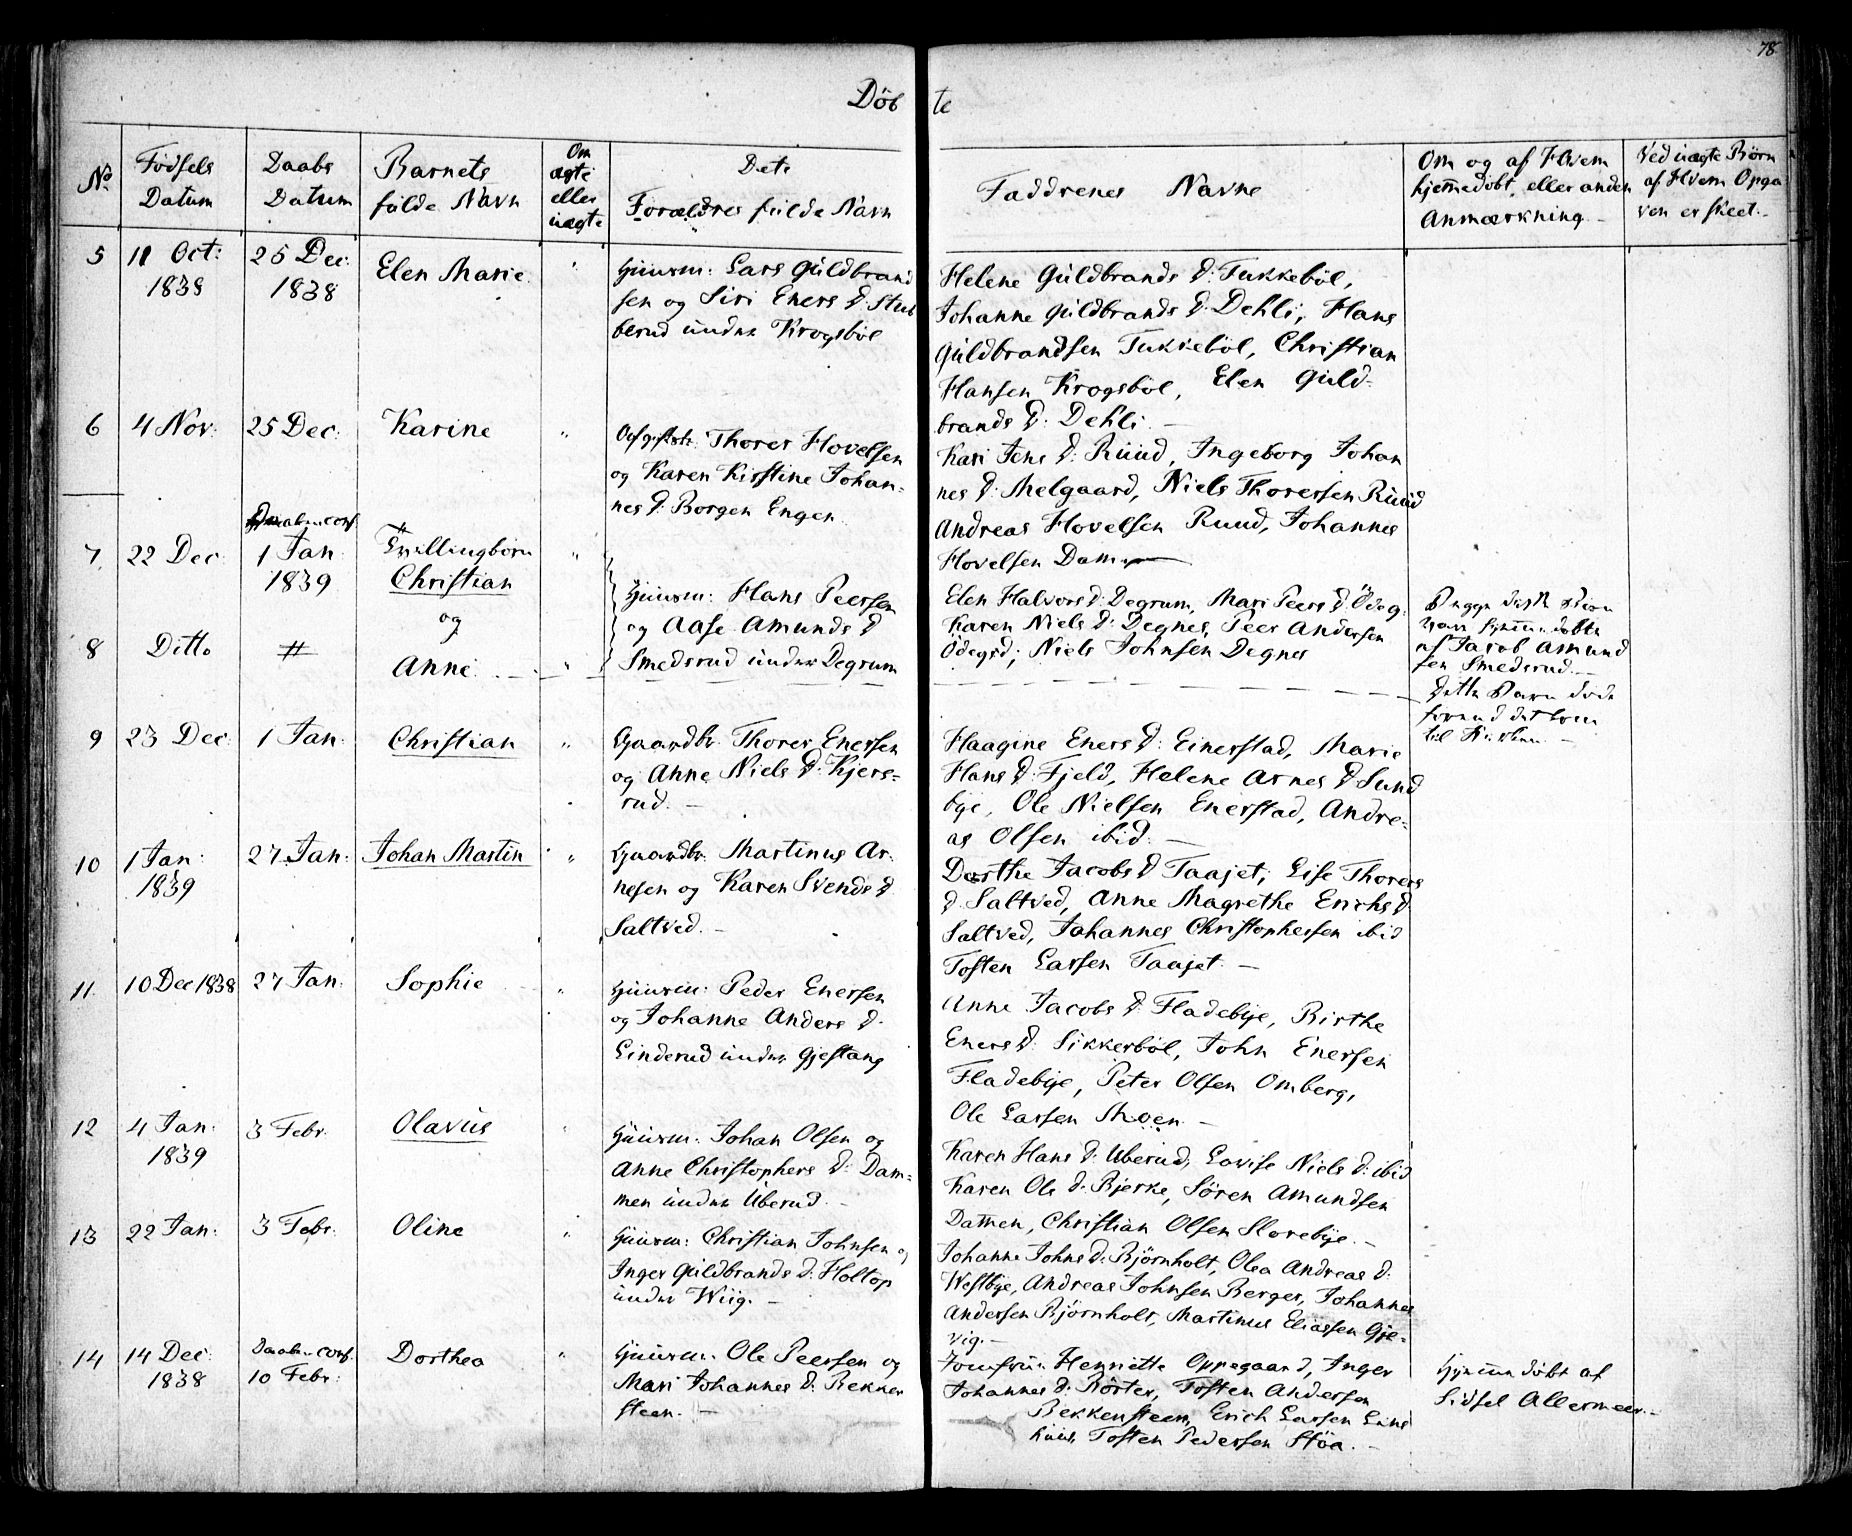 78
Döbte
No
Födsels Datum
Daabs Datum
Barnets fulde Navn
Om ægte eller uægte
Dets Forældres fulde Navn
Faddrenes Navne
Om og af Hvem hjem̄edöbt, eller anden Anmærkning.
Ved uægte Börn af Hvem Opgaven er skeet.
5
11 Oct:
1838
25 Dec:
1838
Elen Marie
"
Huusm: Lars Guldbrand
sen og Siri Eners D. Stub
berud under Krogsböl
Helene Guldbrands D: Tukkeböl,
Johanne Guldbrands D: Dehli, Hans
Guldbrandsen Tukkeböl, Christian
Hansen Krogsböl, Elen Guld-
brands D: Dehli. —
6
4 Nov:
25 Dec:
Karine
"
Thorer Hovelsen
og Karen Kirstine Johan-
nes D: Borgen Engen
Kari Jens D: Ruud, Ingeborg Johan
nes D: Melgaard, Niels Thoressen Ruud
Andreas Hovelsen Ruud, Johannes
Hovelsen Dam
7
22 Dec
Daabs conf.
1 Jan
1839
Tvillingbörn
Christian
og
"
Huusm: Hans Peersen
og Aase Amunds D
Smedsrud under Degrum
Elen Halvors D: Degrum, Mari Peers D: Ödeg:
Karen Niels D: Degnes, Peer Andersen
Ödegrd; Niels Johnsen Degnes
Begge disse Börn
vare hjem̄edöbte
af Jacob Amund
sen Smedsrud. —
Dette Barn döde
forend det kom
til Kirken. —
8
Ditto
#
Anne
"
9
23 Dec:
1 Jan:
Christian
"
Gaardbr. Thorer Enersen
og Anne Niels D: Kjers-
rud. —
Haagine Eners D: Einerstad, Marie
Hans D: Fjeld, Helene Arnes D: Sund
bye, Ole Nielsen Enerstad, Andre-
as Olsen ibid: —
10
1 Jan:
1839
27 Jan:
Johan Martin
"
Gaardbr: Martinus Ar-
nesen og Karen Svends D
Saltved. —
Dorthe Jacobs D Taajet; Lise Thorers
D. Saltved, Anne Magrethe Erichs D
Saltved, Johannes Christophersen ibid
Tosten Larsen Taajet. —
11
10 Dec 1838
27 Jan:
Sophie
"
Huusm: Peder Enersen
og Johanne Anders D.
Linderud under Gjestang
Anne Jacobs D: Fladebye, Birthe
Eners D: Sikkerböl, John Enersen
Fladebye, Peter Olsen Omberg,
Ole Larsen Moen. —
12
4 Jan:
1839
3 Febr.
Olavus
"
Huusm: Johan Olsen og
Anne Christophers D: Dam-
men under Uberud. —
Karen Hans D: Uberud, Lovise Niels D: ibid
Karen Ole D: Bjerke, Sören Amundsen
Dam̄en, Christian Olsen Slorebye. —
13
22 Jan:
3 Febr:
Oline
"
Huusm: Christian Johnsen og
Inger Guldbrands D: Holtop
under Wiig. —
Johanne Johns D: Björnholt, Olea Andreas D:
Westbye, Andreas Johnsen Berger, Johannes
Andersen Björnholt, Martinus Eliassen Gje-
vig. —
14
14 Dec:
1838
Daabs conf.
10 Febr:
Dorthea
"
Huusm. Ole Peersen og
Mari Johannes D: Bekken
steen. —
Jomfru Henriette Oppegaard, Inger
Johannes D: Börter, Tosten Andersen
Bekkensteen, Erich Larsen Lins
huus, Tosten Pedersen Stöa. —
Hjem̄edöbt af
Sidsel Allermeer. —